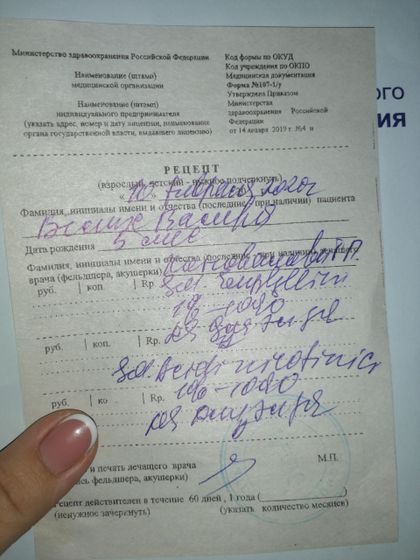 Министерство здравоохранения Российской Федерации
Код формы по ОКУД
Код учреждения по ОКПО
Наименование (штамп)
медицинской организации
Медицинская документация
Форма №107-1/у
Утверждена Приказом
Министерства
здравоохранения Российской
Федерации
от 14 января 2019 г. №4 н
Наименование (штамп)
индивидуального предпринимателя
(указать адрес, номер и дату лицензии, наименование
органа государственной власти, выдавшего лицензию)
ного
ния
РЕЦЕПТ
(взрослый, детский - нужное подчеркнуть)
«10» февраля 2020г
Фамилия, инициалы имени и отчества (последнее при наличии) пациента
Валерия
Дата рождения 5 мес
Фамилия, инициалы имени и отчества (последнее при наличии) лечащего
врача (фельдшера, акушерки)
руб. коп. Rp. Sol. Euphyllini
1% - 10,0
руб. коп. Rp. для эл-за
Sol. acidi nicotinici
руб. ко Rp. 1% - 10,0
для эл-за
и печать лечащего врача
сь фельдшера, акушерки)
М.П.
Рецепт действителен в течение 60 дней, 1 года (
)
(ненужное зачеркнуть)
(указать количество месяцев)